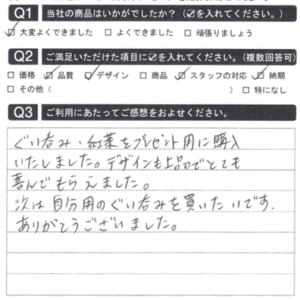 Q1 当社の商品はいかがでしたか？（☑を入れてください。）
☑ 大変よくできました □ よくできました □ 頑張りましょう
Q2 ご満足いただけた項目に☑を入れてください。（複数回答可）
□ 価格 ☑ 品質 ☑ デザイン □ 商品 ☑ スタッフの対応 ☑ 納期
□ その他（ ） □ 特になし
Q3 ご利用にあたってご感想をおよせください。
ぐい呑み・紅葉をプレゼント用に購入
いたしました。デザインも上品でとても
喜んでもらえました。
次は自分用のぐい呑みを買いたいです。
ありがとうございました。